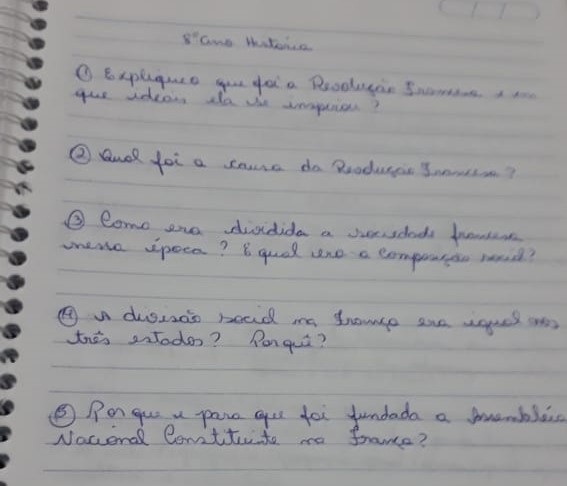 8º ano História
① Explique o que foi a Revolução Francesa e em
que ideais ela se inspirou?
② Qual foi a causa da Revolução Francesa?
③ Como era dividida a sociedade francesa
nessa época? E qual era a composição social?
④ A divisão social na França era igual nos
três estados? Por quê?
⑤ Por que e para que foi fundada a Assembléia
Nacional Constituinte na França?